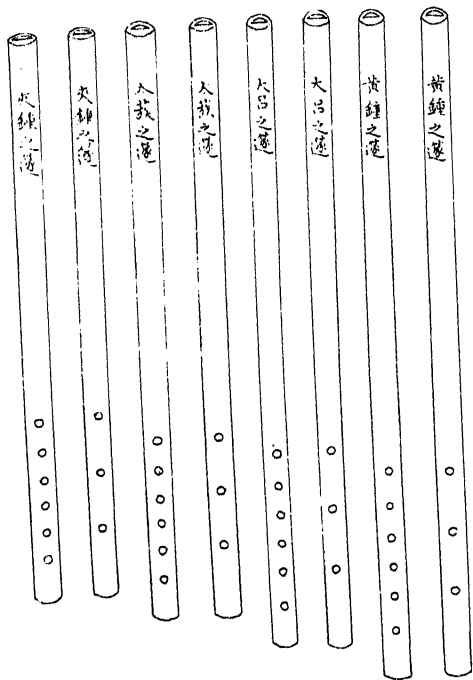 黃鍾之篴
黃鍾之篴
大呂之篴
大呂之篴
太蔟之篴
太蔟之篴
夾鍾之篴
夾鍾之篴